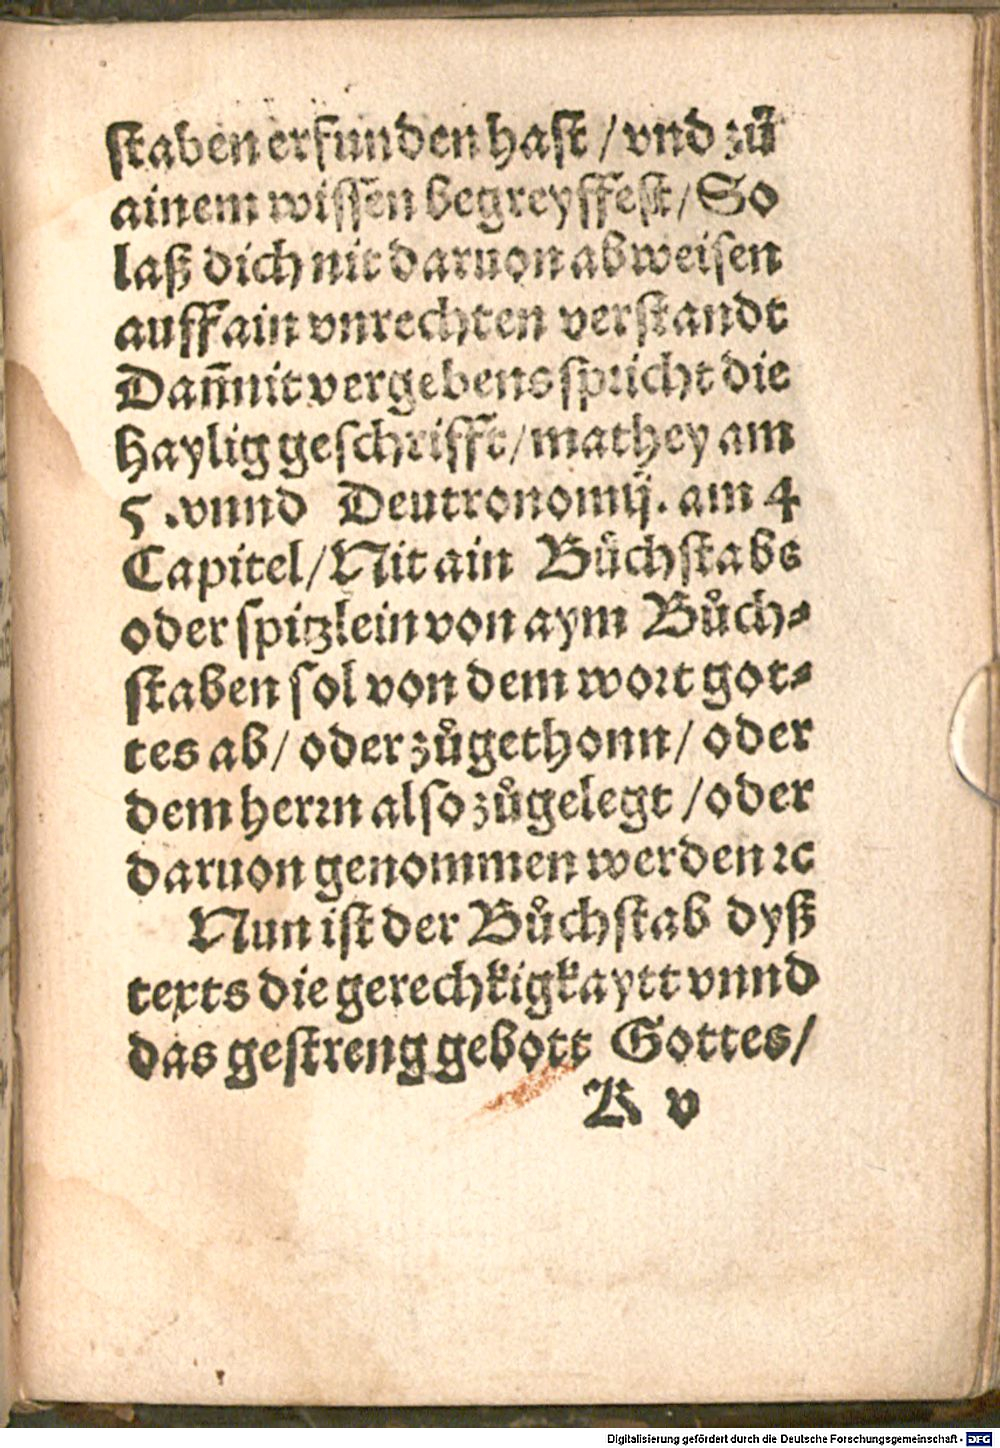 staben erfunden hast / vnd zů
ainem wissen begreyffest / So
laß dich nit daruon abweisen
auff ain vnrechten verstandt
Dan̄ nit vergebens spricht die
haylig geschrifft / mathey am
5 .vnnd Deutronomij. am 4
Capitel / Nit ain Bůchstabs
oder spitzlein von aym Bůch⸗
staben sol von dem wort got⸗
tes ab / oder zůgethonn / oder
dem herrn also zůgelegt / oder
daruon genommen werden ꝛc
Nun ist der Bůchstab dyß
texts die gerechkigkaytt vnnd
das gestreng gebott Gottes /
K v
Digitalisierung gefördert durch die Deutsche Forschungsgemeinschaft - DFG